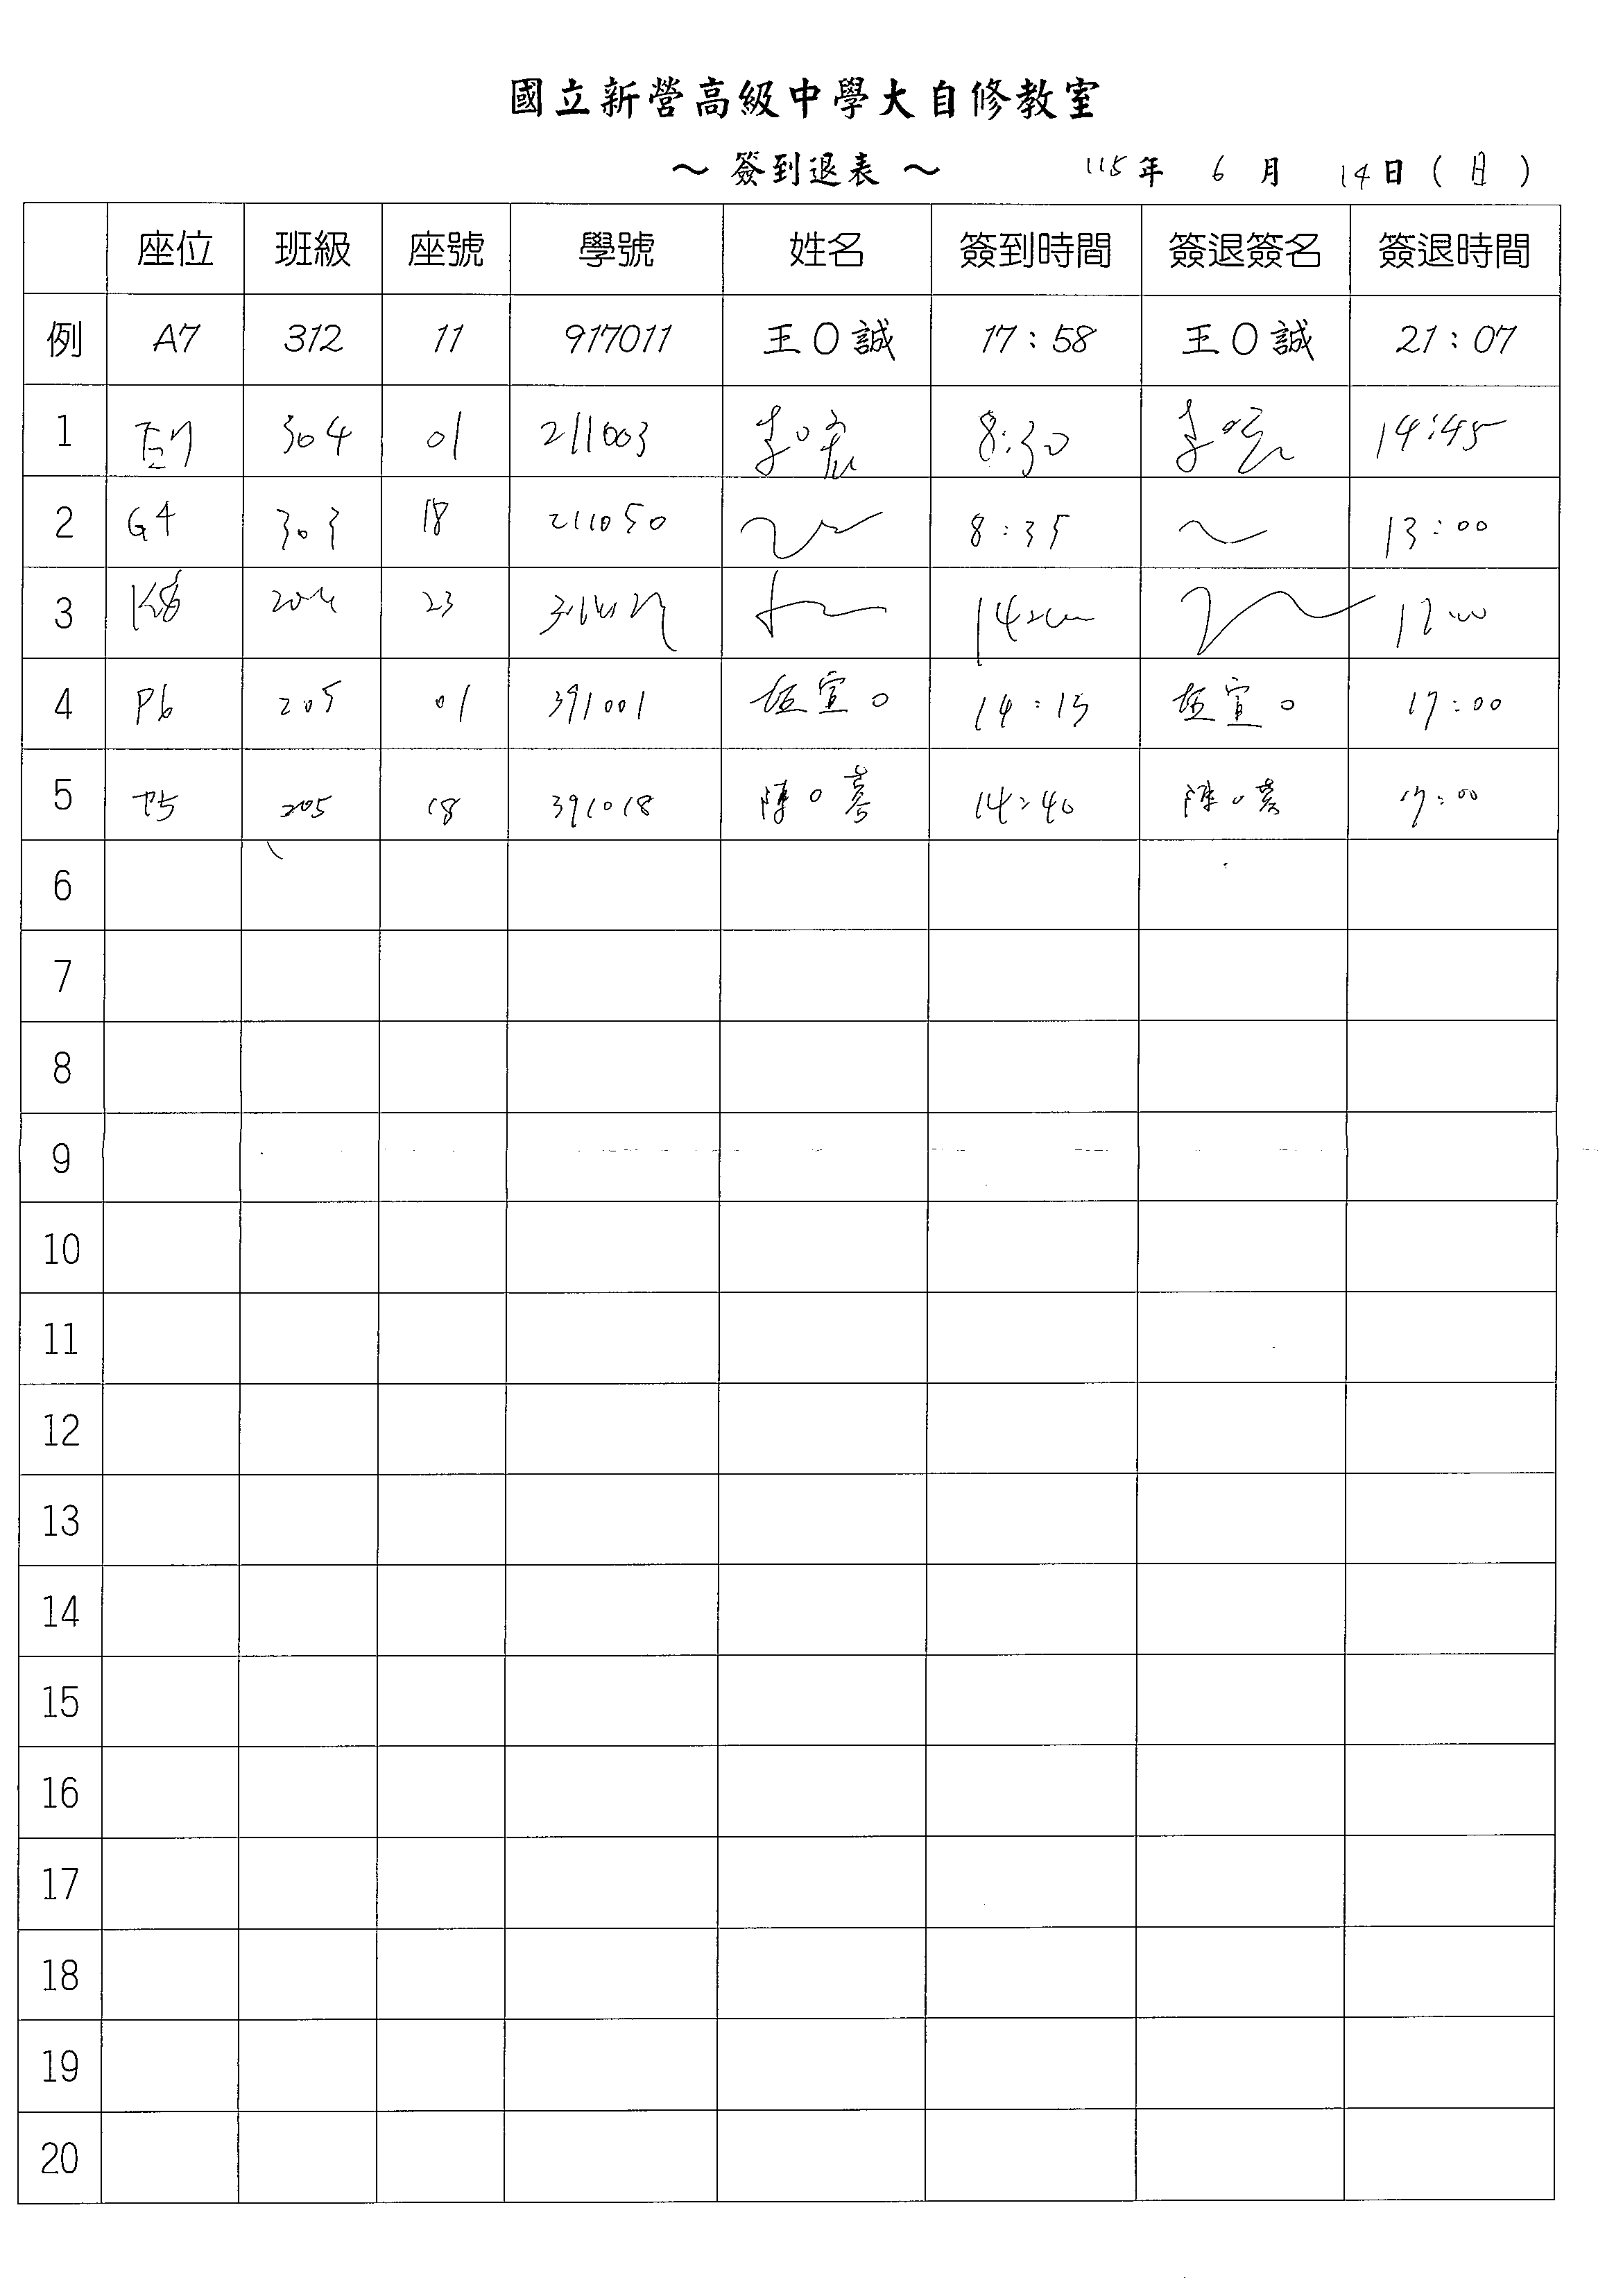 國立新營高級中學大自修教室
～ 簽到退表 ～ 115年 6 月 14日 ( 日 )
座位 班級 座號 學號 姓名 簽到時間 簽退簽名 簽退時間
例 A7 312 11 917011 王O誠 17:58 王O誠 21:07
1 304 01 211003 李O宏 8:30 李O宏 14:45
2 G4 303 18 211050 8:35 13:00
3 K8 204 23 17:00
4 P6 205 01 391001 宣O 14:15 宣O 17:00
5 205 18 391018 陳O 14:40 陳O 17:00
6
7
8
9
10
11
12
13
14
15
16
17
18
19
20